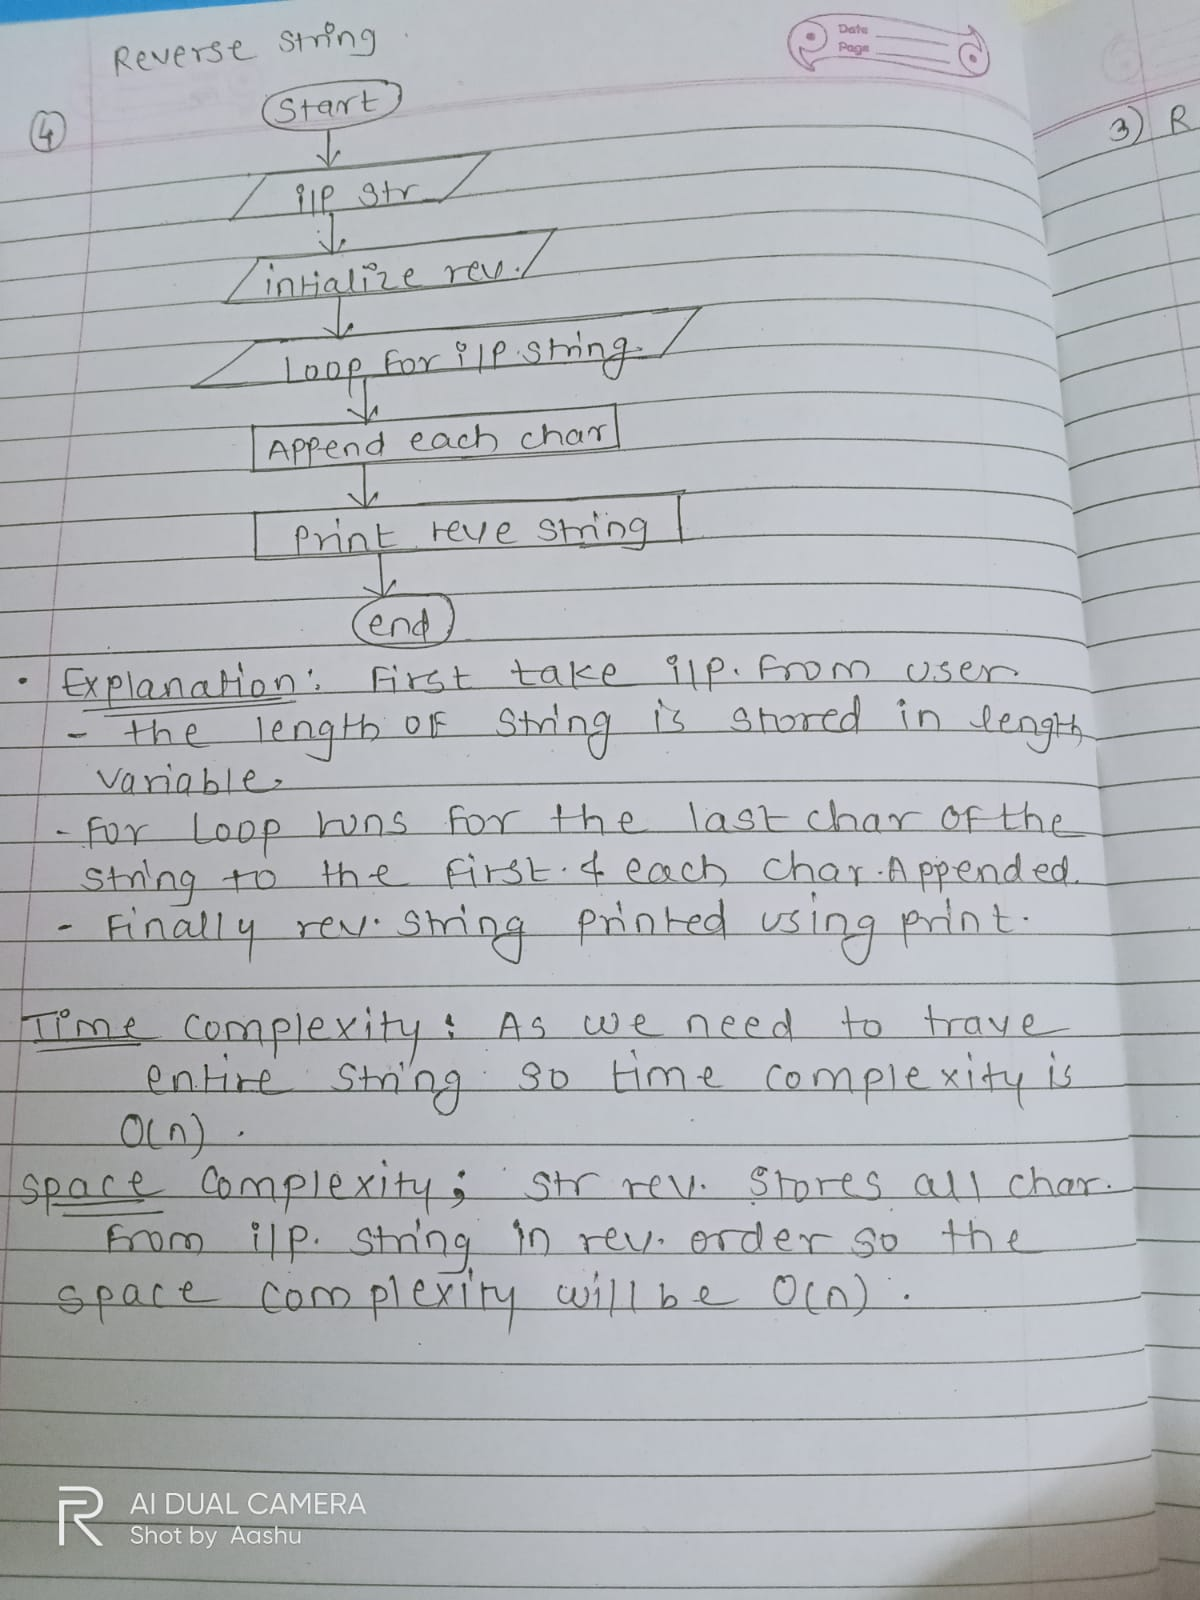 Reverse String
Date
Page
4
Start
i/p str
3) R
intialize rev.
Loop for i/p string.
Append each char
Print reve string
end
• Explanation: First take i/p. from user
- the length of string is stored in length
variable.
- for Loop runs for the last char of the
string to the first. & each char. Appended.
- Finally rev. string printed using print.
Time complexity: As we need to trave
entire string so time complexity is
O(n).
Space Complexity; str rev. stores all char.
from i/p. string in rev. order so the
space complexity will be O(n).
R
AI DUAL CAMERA
Shot by Aashu